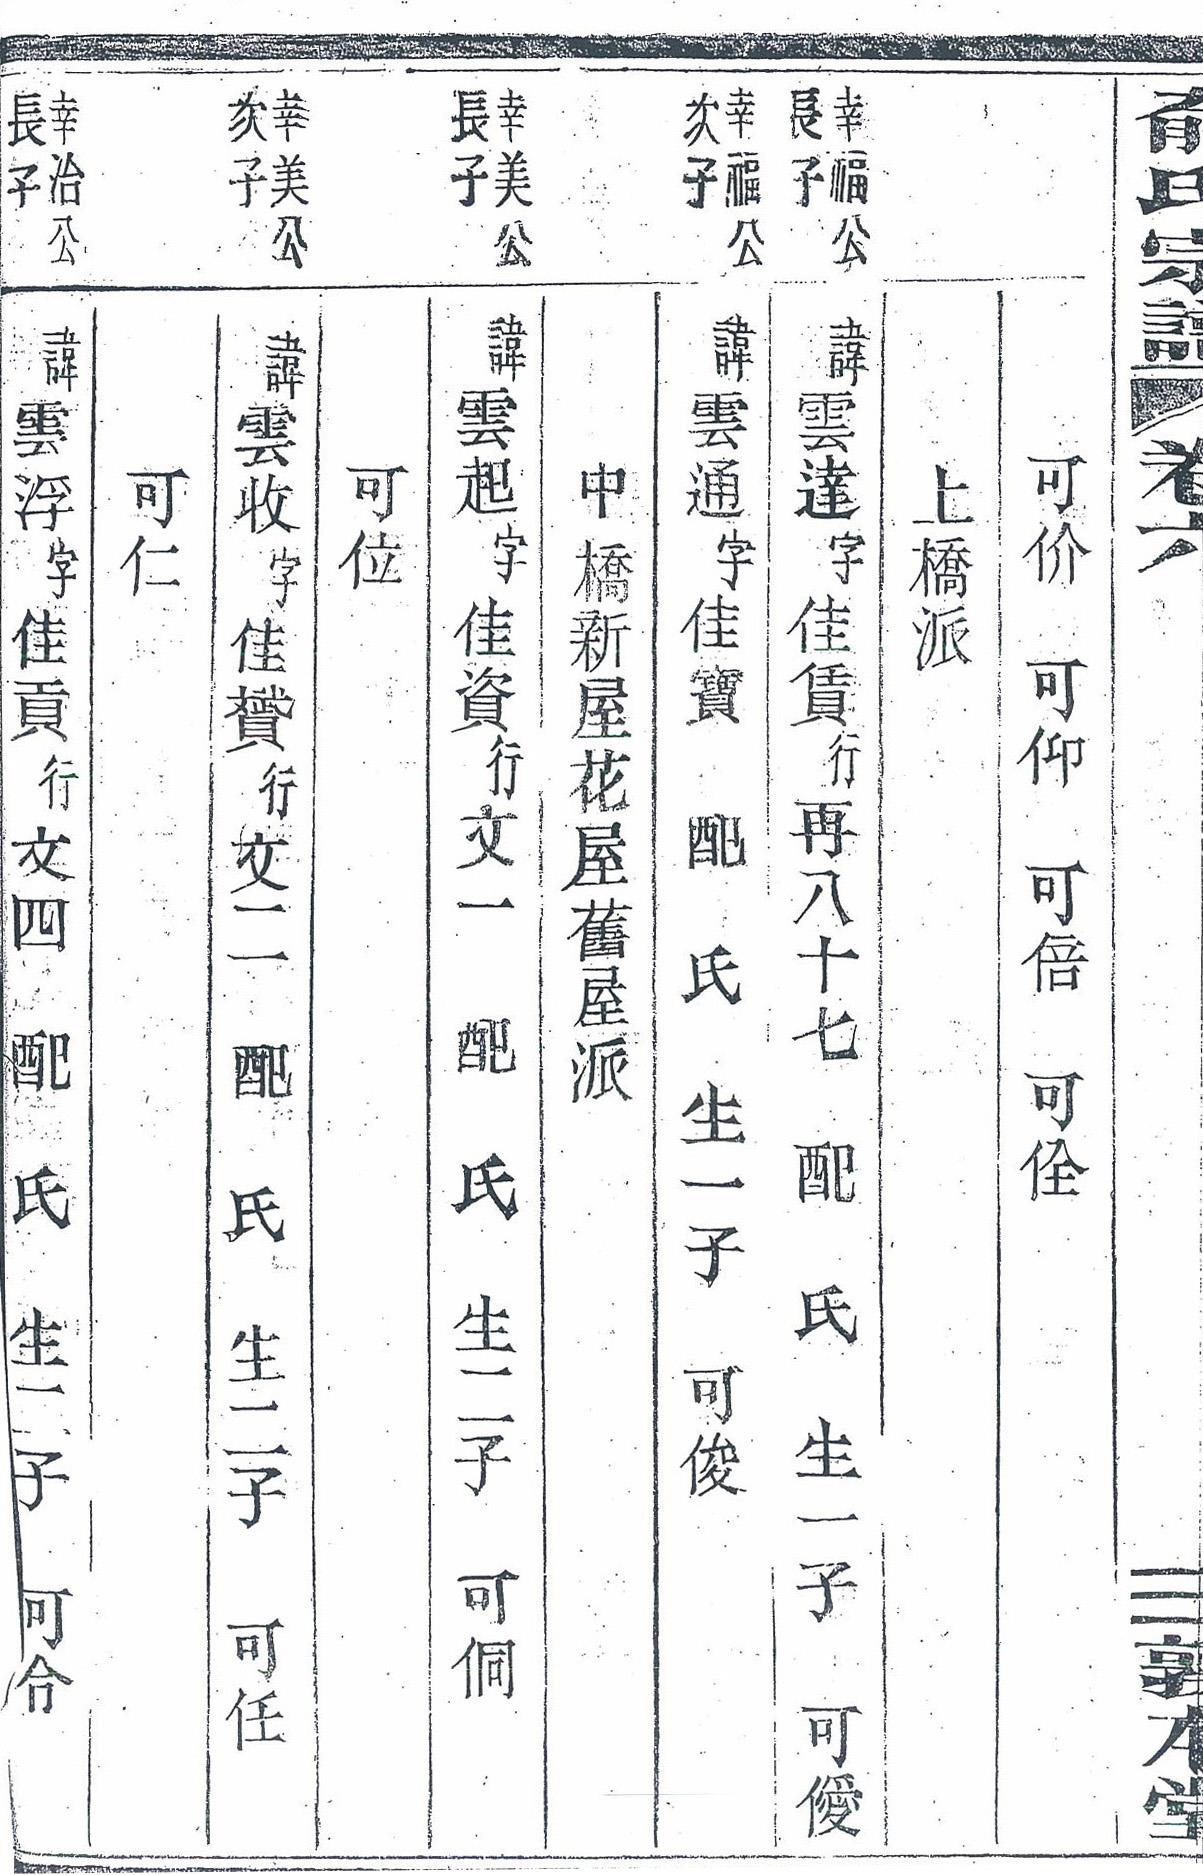 氏宗譜 卷六 三 敦本堂
可价 可仰 可倍 可佺
上橋派
幸福公長子 諱雲達字佳賃行再八十七 配 氏 生一子 可優
幸福公次子 諱雲通字佳寶 配 氏 生一子 可俊
中橋新屋花屋舊屋派
幸美公長子 諱雲起字佳資行文一 配 氏 生二子 可侗
可位
幸美公次子 諱雲收字佳贇行文二 配 氏 生二子 可任
可仁
幸治公長子 諱雲浮字佳貢行文四 配 氏 生二子 可合